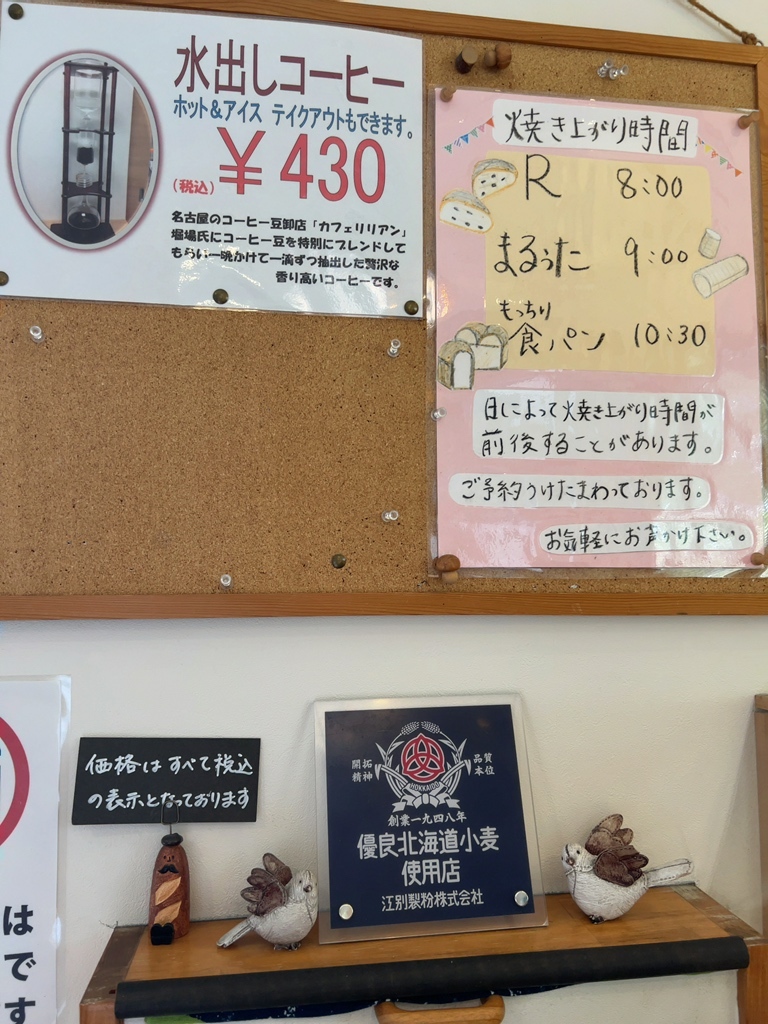 水出しコーヒー
ホット&アイス テイクアウトもできます。
(税込) ¥430
名古屋のコーヒー豆卸店「カフェリリアン」
堀場氏にコーヒー豆を特別にブレンドして
もらい一晩かけて一滴ずつ抽出した贅沢な
香り高いコーヒーです。
焼き上がり時間
R 8:00
まるった 9:00
もっちり
食パン 10:30
日によって焼き上がり時間が
前後することがあります。
ご予約うけたまわっております。
お気軽にお声かけ下さい。
価格はすべて税込
の表示となっております
開拓
精神
品質
本位
HOKKAIDO
創業一九四八年
優良北海道小麦
使用店
江別製粉株式会社
はです